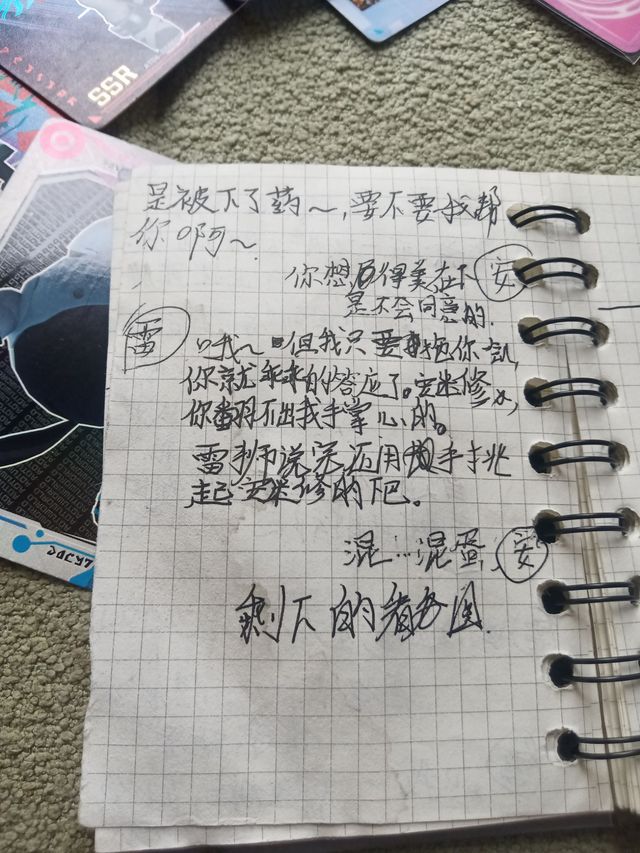 SSR
是被下了药～,要不要我帮
你啊～
你想得美在下 安
是不会同意的.
雷 哦～但我只要抱你
你就乖乖的答应了。安米修,
你翻不出我手掌心的。
雷狮说完还用手挑
起安米修的下巴。
混…混蛋, 安
剩下的看图.